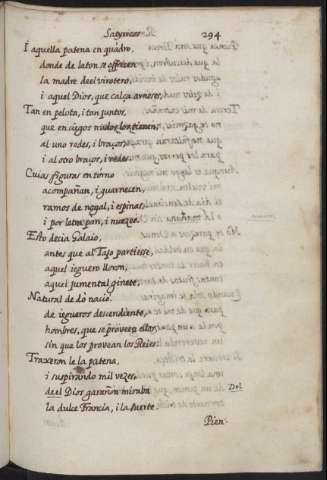 Satyricos
294
I aquella patena en quadro,
donde de laton se ofrezen
la madre de el virotero,
i aquel Dios, que calça arneses,
Tan en pelota, i tan juntos,
que en ciegos nudos los tienen,
al uno redes, i braços,
i al otro braços, i redes.
Cuias figuras en torno
acompañan, i guarnecen,
ramos de nogal, i espinas,
i por letra pan, i nuezes.
Esto decia Galaio,
antes que al Tajo partiesse,
aquel ieguero lloron,
aquel jumental ginete,
Natural de dó nacio
de iegueros descendiente,
hombres, que se proveen ellos,
sin que los provean los Reies.
Traxeron le la patena,
i suspirando mil vezes,
de el Dios garañon miraba
la dulce Francia, i la suerte.
Del
Pien-